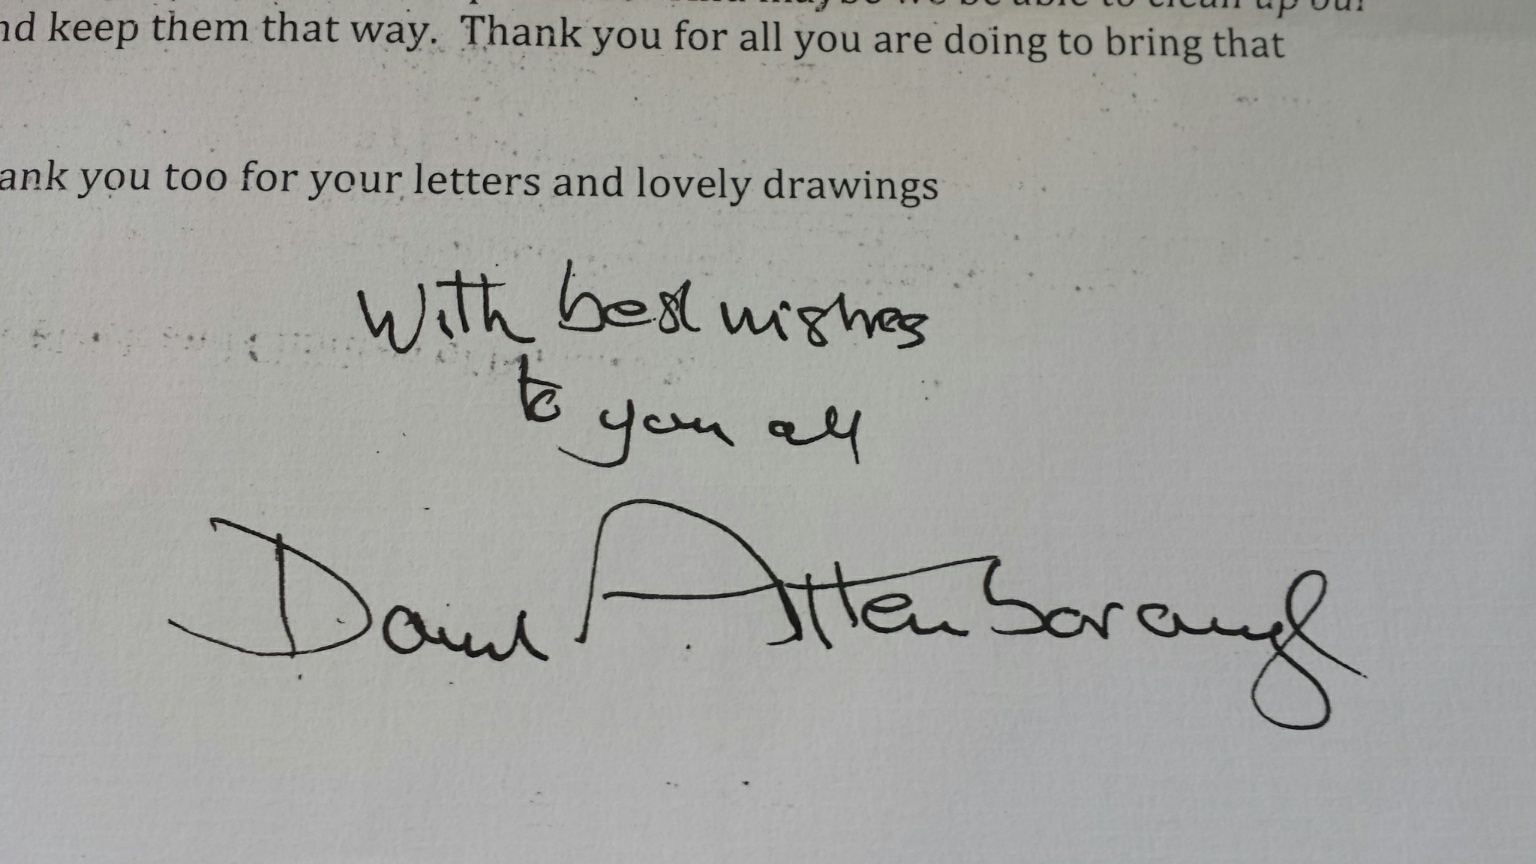 and maybe we be able to clean up our
nd keep them that way. Thank you for all you are doing to bring that
ank you too for your letters and lovely drawings
With best wishes
to you all
David Attenborough